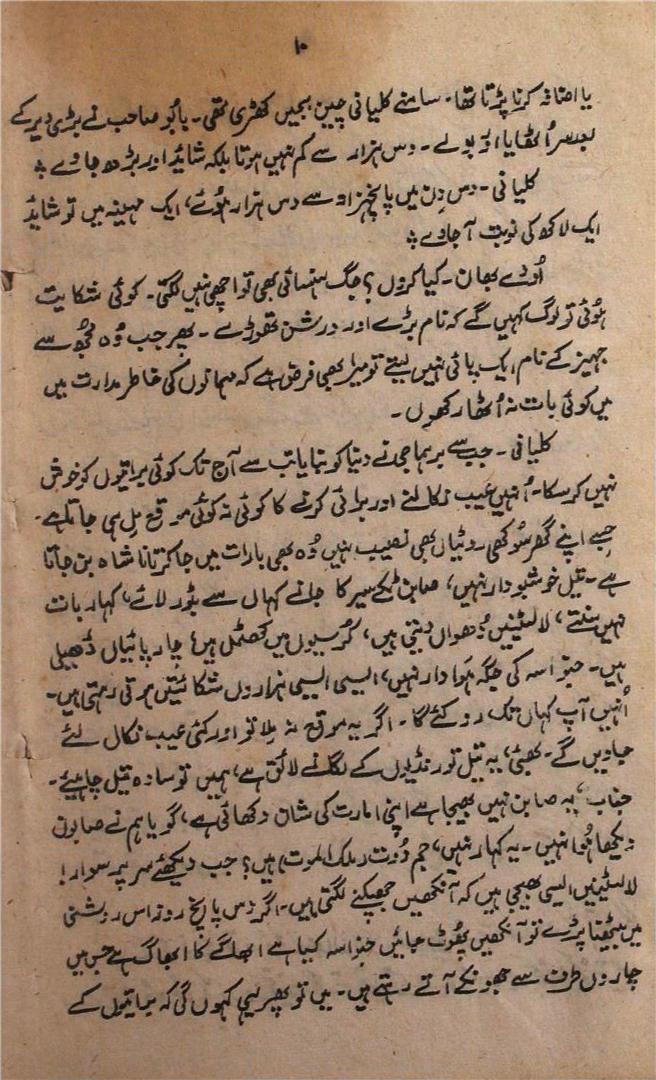 ۱۰
یا اضافہ کرنا پڑتا تھا۔ سامنے کلیانی چیں بجبیں کھڑی تھی۔ بابو صاحب نے بڑی دیر کے
بعد سر اُٹھایا اور بولے۔ دس ہزار سے کم نہیں ہوتا بلکہ شائد اور بڑھ جاوے ؞
کلیانی۔ دس دِن میں پانچہزار سے دس ہزار ہوئے، ایک مہینہ میں تو شائد
ایک لاکھ کی نوبت آ جاوے ؞
اُودے بھان۔ کیا کروں؟ جگ ہنسائی بھی تو اچھی نہیں لگتی۔ کوئی شکایت
ہوئی تو لوگ کہیں گے کہ نام بڑے اور درشن تھوڑے۔ پھر جب وُہ مجھ سے
جہیز کے نام ایک پائی نہیں لیتے تو میرا بھی فرض ہے کہ مہمانوں کی خاطر مدارت میں
میں کوئی بات نہ اُٹھا رکھوں۔
کلیانی۔ جب سے برہما جی نے دنیا کو بنایا تب سے آج تک کوئی براتیوں کو خوش
نہیں کر سکا۔ اُنہیں عیب نکالنے اور برائی کرنے کا کوئی نہ کوئی موقع مِل ہی جاتا ہے۔
جسے اپنے گھر سُوکھی روٹیاں بھی نصیب نہیں وُہ بھی بارات میں جا کر تانا شاہ بن جاتا
ہے۔ تیل خوشبودار نہیں، صابن ٹکے سیر کا جانے کہاں سے بٹور لائے، کہار بات
نہیں سنتے، لالٹینیں دُھواں دیتی ہیں، کُرسیوں میں کھٹمل ہیں، چارپائیاں ڈھیلی
ہیں۔ جنواسہ کی جگہ ہوادار نہیں، ایسی ایسی ہزاروں شکائتیں ہوتی رہتی ہیں۔
اُنہیں آپ کہاں تک روکئے گا۔ اگر یہ موقع نہ مِلا تو اور کئی عیب نکال لئے
جاویں گے۔ بھئی، یہ تیل تو رنڈیوں کے لگانے لائق ہے، ہمیں تو سادہ تیل چاہیئے۔
جناب، یہ صابن نہیں بھیجا ہے اپنی امارت کی شان دکھائی ہے، گویا ہم نے صابون
دیکھا ہُوا نہیں۔ یہ کہار نہیں، جم دُوت (ملک الموت) ہیں؟ جب دیکھئے سر پر سوار!
لالٹینیں ایسی بھیجی ہیں کہ آنکھیں جھپکنے لگتی ہیں۔ اگر دس پانچ روز اس روشنی
میں بیٹھنا پڑے تو آنکھیں پھوٹ جائیں جنواسہ کیا ہے ابھاگے کا ابھاگ ہے جس میں
چاروں طرف سے جھونکے آتے رہتے ہیں۔ میں تو پھر یہی کہوں گی کہ براتیوں کے